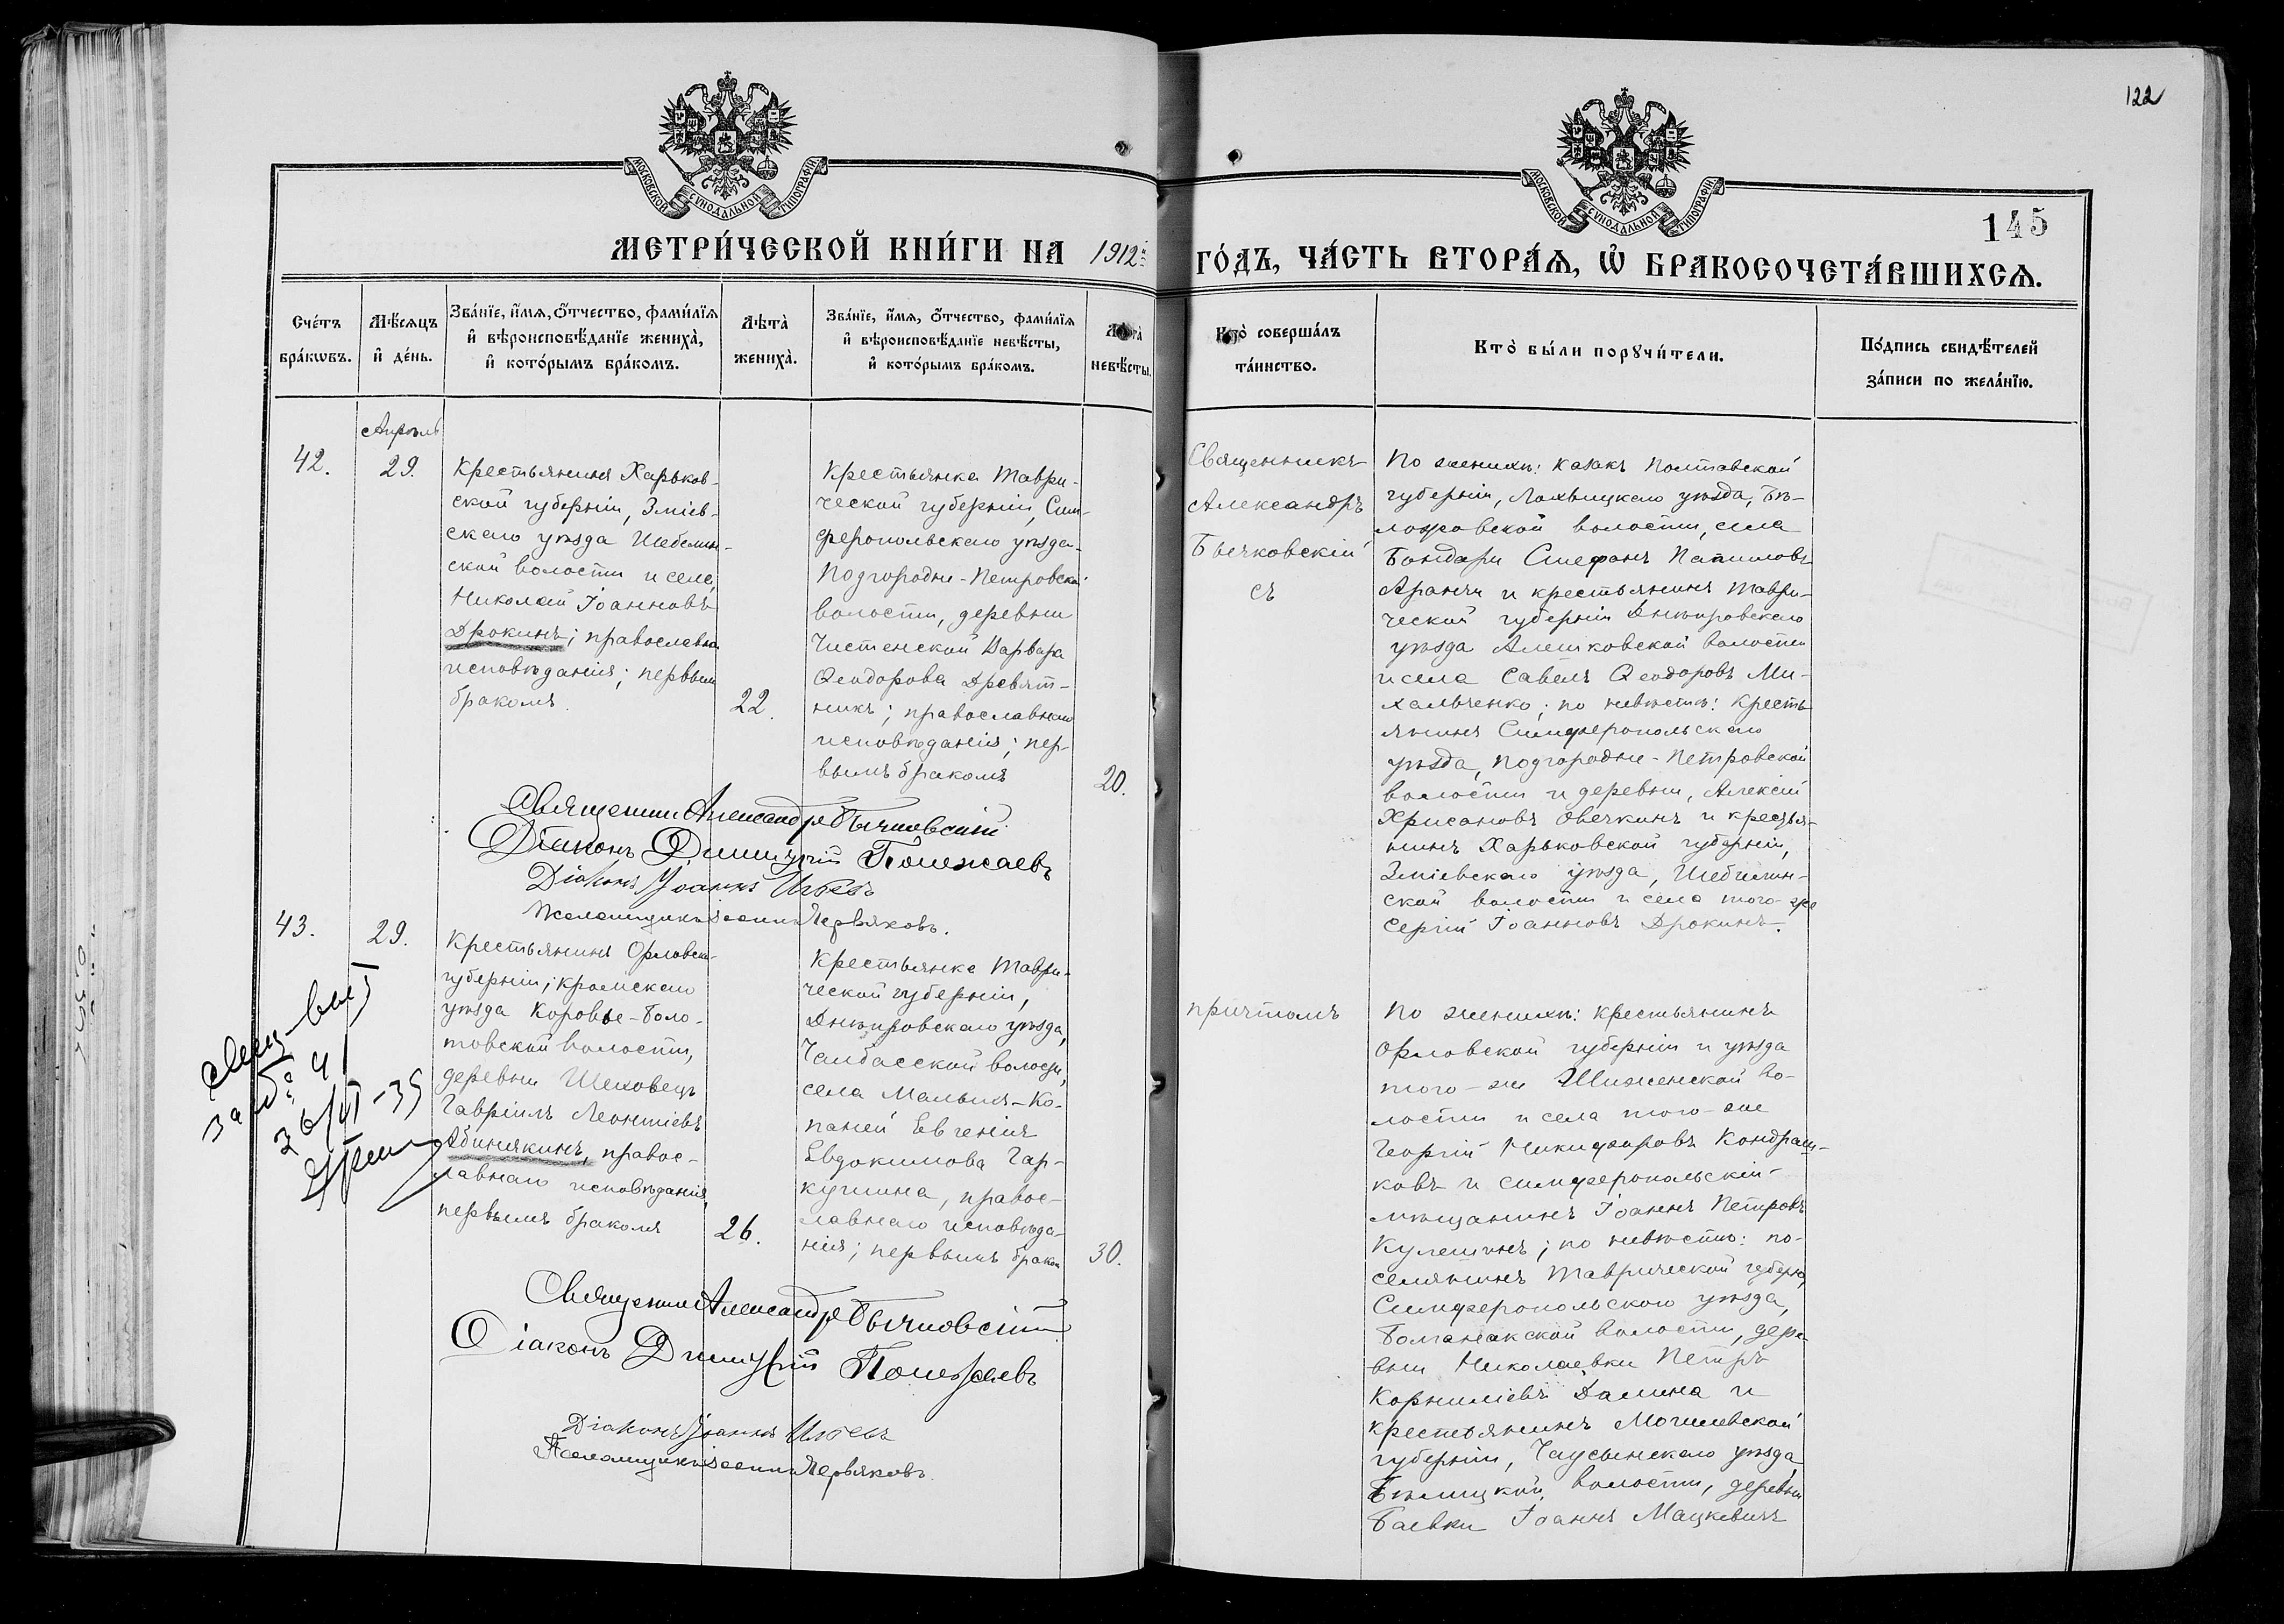 122
145
МОСКОВСКОЙ СУНОДАЛЬНОЙ ТИПОГРАФІИ
МОСКОВСКОЙ СУНОДАЛЬНОЙ ТИПОГРАФІИ
МЕТРИ́ЧЕСКОЙ КНИ́ГИ НА 1912й
ГО́ДЪ, ЧА́СТЬ ВТОРА́Ѧ, Ѡ҆ БРАКОСОЧЕТА́ВШИХСѦ.
Сче́тъ
бра́кѡвъ.
Мѣ́сѧцъ
и҆ де́нь.
Зва́нїе, и҆́мѧ, ѻ҆́тчество, фами́лїѧ
и҆ вѣроисповѣ́данїе жениха̀,
и҆ кото́рымъ бра́комъ.
Лѣта̀
жениха̀.
Зва́нїе, и҆́мѧ, ѻ҆́тчество, фами́лїѧ
и҆ вѣроисповѣ́данїе невѣ́сты,
и҆ кото́рымъ бра́комъ.
Лѣта̀
невѣ́сты.
Кто̀ соверша́лъ
та́инство.
Кто̀ бы́ли порꙋчи́тели.
По́дпись свидѣ́телей
за́писи по жела́нїю.
42.
Апрѣль
29.
Крестьянинъ Харьков-
ской губерніи, Зміев-
скаго уѣзда Шебелин-
ской волости и села
Николай Іоанновъ
Дрокинъ; православна
исповѣданія; первымъ
бракомъ.
22.
Крестьянка Таври-
ческой губерніи, Сим-
феропольскаго уѣзда
Подгородне-Петровской
волости, деревни
Чистенской Варвара
Ѳеодорова Древят-
никъ; православнаго
исповѣданія; пер-
вымъ бракомъ
20.
Священникъ
Александръ
Бычковскій
съ
По женихѣ: казакъ Полтавской
губерніи, Лохвицкаго уѣзда, Бѣ-
лоцровской волости, села
Бондари Стефанъ
и крестьянинъ Таври-
ческой губерніи Днѣпровскаго
уѣзда Алешковской волости
и села Савелъ Ѳеодоровъ Ми-
хальченко; по невѣстѣ: кресть
янинъ Симферопольскаго
уѣзда, Подгородне-Петровской
волости и деревни, Алексій
Хрисановъ Овечкинъ и крестья-
нинъ Харьковской губерніи,
Зміевскаго уѣзда, Шебелин-
ской волости и села того-же
Сергій Іоанновъ Дрокинъ.
Священникъ Александръ Бычковскій
Діаконъ Димитрій Полежаевъ
Діаконъ Іоаннъ
Псаломщикъ Іоаннъ Червяковъ.
43.
29.
Крестьянинъ Орловской
губерніи, Кромскаго
уѣзда Коровье-Боло-
товской волости,
деревни Шеховецъ
Гавріилъ Леонтіевъ
Абинякинъ, правос-
лавнаго исповѣданія,
первымъ бракомъ
26.
Крестьянка Таври-
ческой губерніи,
Днѣпровскаго уѣзда,
Чалбасской волости,
села Малыхъ-Ко-
паней Евгенія
Евдокимова Гар-
кушина, правос-
лавнаго исповѣда-
нія; первымъ бракомъ
30.
причтомъ
По женихѣ: крестьянинъ
Орловской губерніи и уѣзда
того-же во-
лости и села того-же
Георгій Никифоровъ Кондраш-
ковъ и симферопольскій
мѣщанинъ Іоаннъ Петровъ
Кулешинъ; по невѣстѣ: по-
селянинъ Таврической губерніи,
Симферопольскаго уѣзда,
Булганакской волости, дере-
вни Николаевки Петръ
Корниліевъ Далина и
крестьянинъ Могилевской
губерніи, Чаусынскаго уѣзда
Бѣлицкой волости, деревни
Баевки Іоаннъ Мацкевичъ
Священникъ Александръ Бычковскій
Діаконъ Димитрій Полежаевъ
Діаконъ Іоаннъ
Псаломщикъ Іоаннъ Червяковъ
за № 41